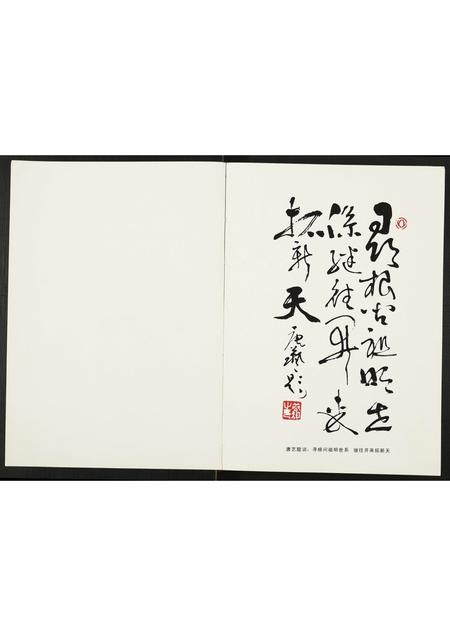 寻根问祖明世
系继往开来
拓新天
唐艺题
唐艺题词：寻根问祖明世系 继往开来拓新天